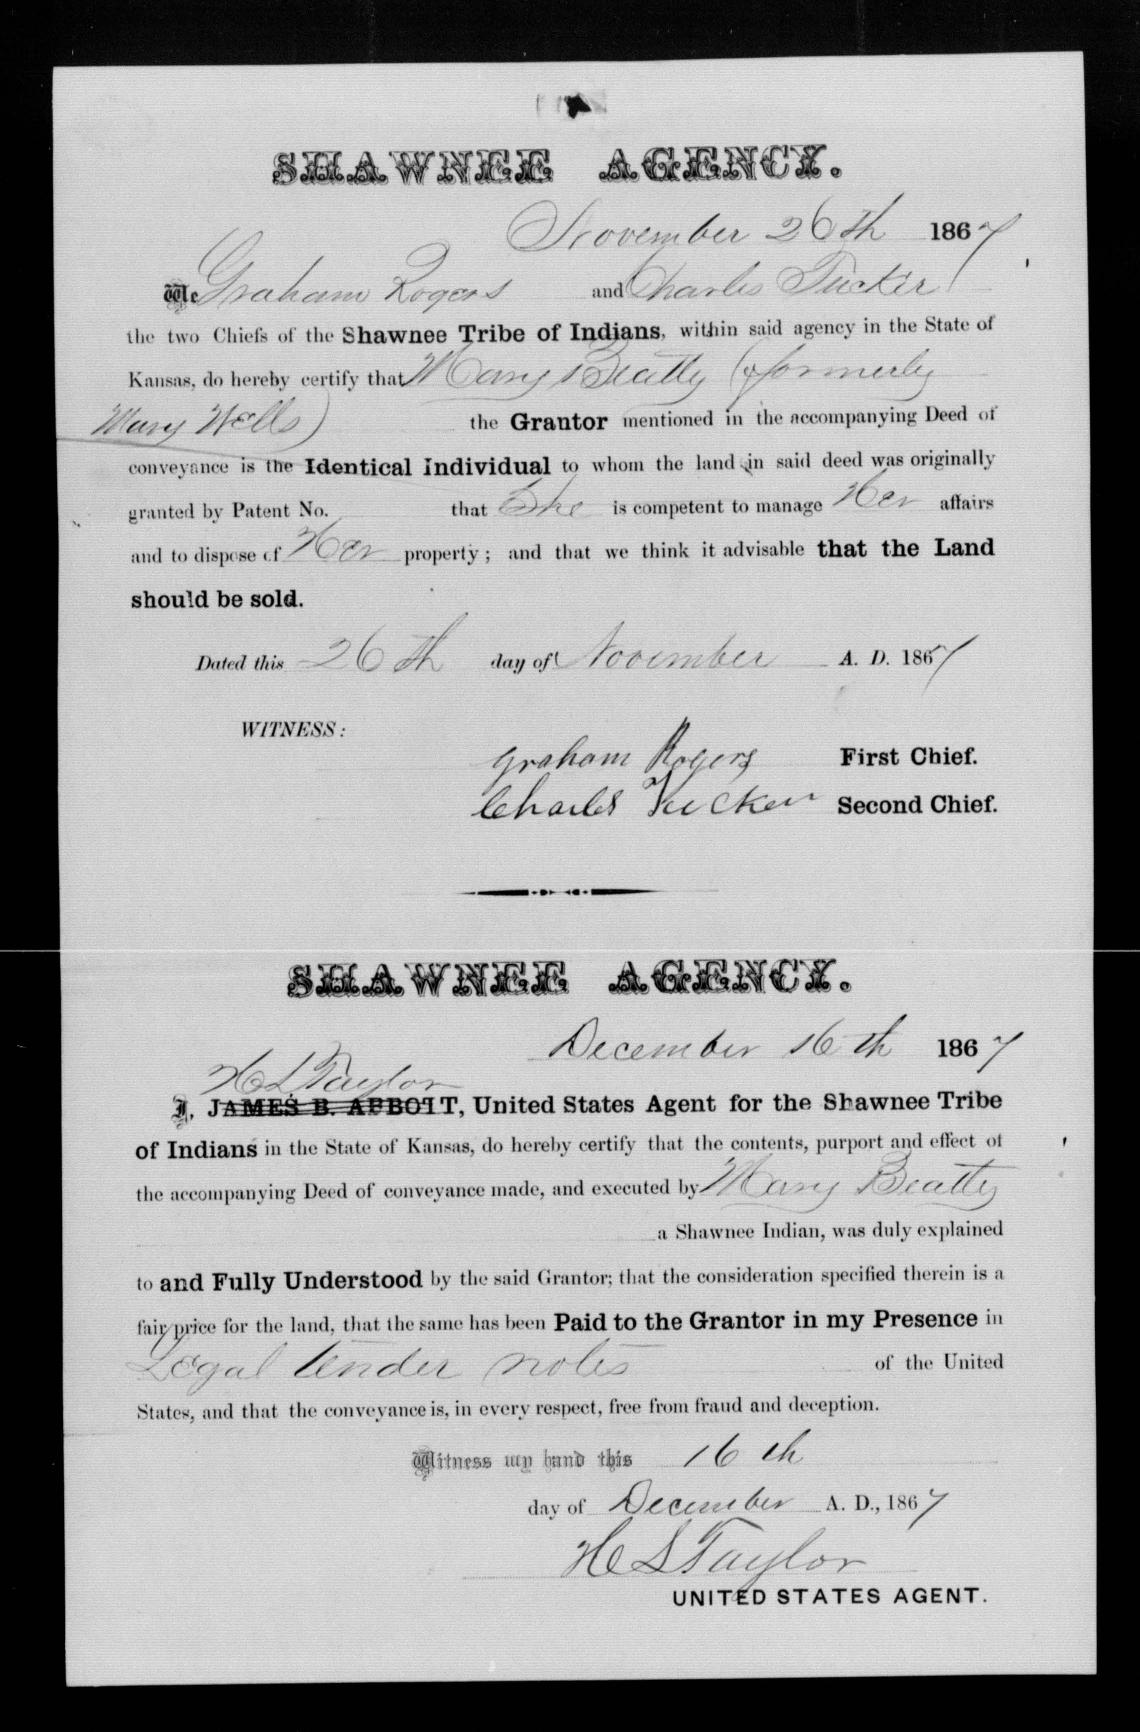 SHAWNEE AGENCY.
November 26th 1867
We Graham Rogers and Charles Tucker
the two Chiefs of the Shawnee Tribe of Indians, within said agency in the State of
Kansas, do hereby certify that Mary Beatty (formerly
Mary Wells) the Grantor mentioned in the accompanying Deed of
conveyance is the Identical Individual to whom the land in said deed was originally
granted by Patent No. that She is competent to manage Her affairs
and to dispose of Her property; and that we think it advisable that the Land
should be sold.
Dated this 26th day of November A. D. 1867
WITNESS:
Graham Rogers First Chief.
Charles Tucker Second Chief.
SHAWNEE AGENCY.
December 16th 1867
H L Taylor
I, JAMES B. ABBOTT, United States Agent for the Shawnee Tribe
of Indians in the State of Kansas, do hereby certify that the contents, purport and effect of
the accompanying Deed of conveyance made, and executed by Mary Beatty
a Shawnee Indian, was duly explained
to and Fully Understood by the said Grantor; that the consideration specified therein is a
fair price for the land, that the same has been Paid to the Grantor in my Presence in
Legal tender notes of the United
States, and that the conveyance is, in every respect, free from fraud and deception.
Witness my hand this 16th
day of December A. D., 1867
H L Taylor
UNITED STATES AGENT.